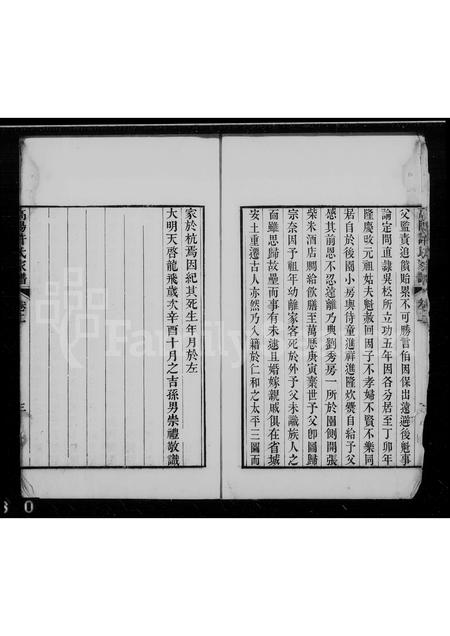 父監責追債貽累不可勝言伯因保出遠避後魁事
論定問直隷吳松所立功五年因各分居至丁卯年
隆慶改元祖姑夫魁赦回因子不孝婦不賢不樂同
居自於後園小房與侍童進祥進隆炊爨自給予父
感其前恩不忍遠離乃典劉秀房一所於園側開張
柴米酒店賙給飲膳至萬歷庚寅棄世予父卽圖歸
宗奈因予祖年幼離家客死於外予父未識族人之
面雖思歸故壘而事有未逮且婚嫁親戚俱在省城
安土重遷古人亦然乃入籍於仁和之太平三圖而
家於杭焉因紀其死生年月於左
大明天啓龍飛歲次辛酉十月之吉孫男崇禮敬識
高陽許氏家譜
卷二
三